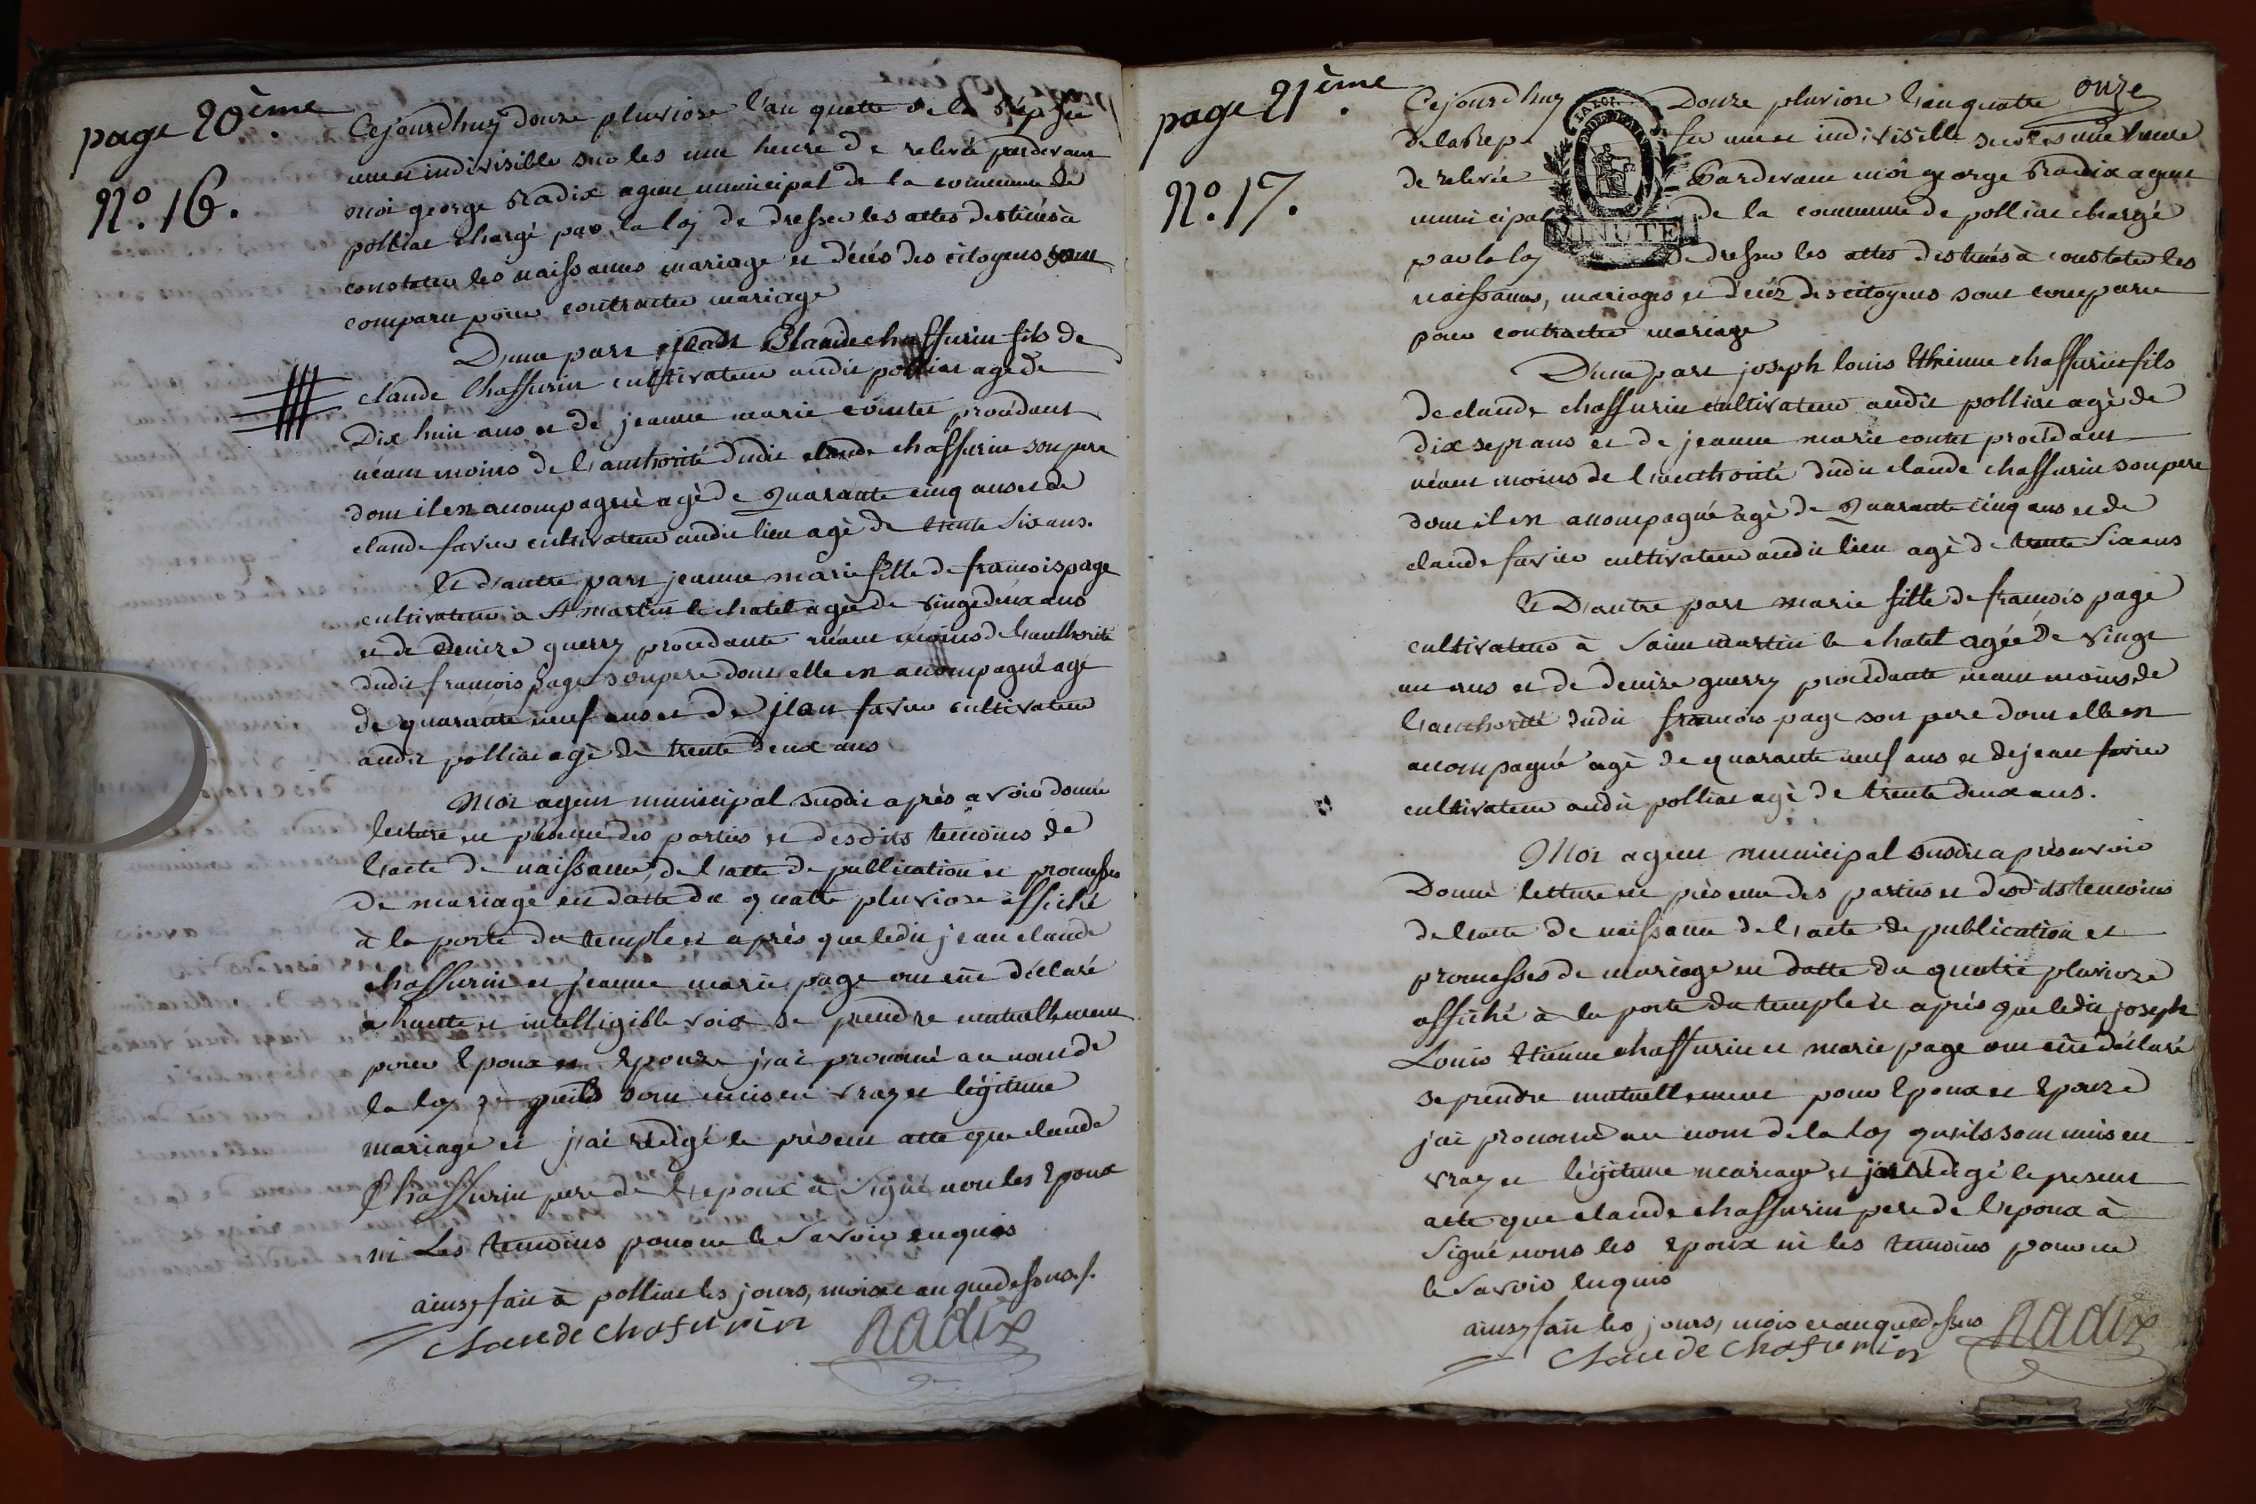 page 20ème
N°. 16.
Cejourdhuy douze pluviose l'an quatre de la Rep. fse
une et indivisible sur les une heure de relevée pardevant
moi george Radix agent municipal de la commune de
polliat chargé par la loy de dresser les attes destinés à
constater les naissances mariage et décés des citoyens sont
comparu pour contracter mariage
D'une part jean Claude chaffurin fils de
claude Chaffurin cultivateur audit polliat agé de
Dix huit ans et de jeanne marie contet procédant
néant moins de l'authorité dudit claude chaffurin son pere
dont il est acompagné agé de Quarante cinq ans et de
claude favier cultivateur audit lieu agé de trente Six ans.
Et d'autre part jeanne marie fille de francois page
cultivateur à St martin le chatel agée de vingt deux ans
et de denize guerry procédante néant moins de l'authorité
dudit francois page son pere dont elle est acompagné agé
de quarante neuf ans et de jean favier cultivateur
audit polliat agé de trente deux ans
Moi agent municipal susdit après avoir donné
lecture en présence des parties et desdits temoins de
l'acte de naissance, de l'atte de publication et promesses
de mariage en datte du quatre pluviose affiché
à la porte du temple et après que ledit jean claude
chaffurin et jeanne marie page ont eûe déclaré
à haute et intelligible voix se prendre mutuellement
pour Epoux et Epouze j'ai prononcé au nom de
la loy qu'ils sont unis en vray et légitime
mariage et j'ai rédigé le présent atte que claude
Chaffurin pere de l'epoux à Signé non les Epoux
ni Les temoins pour ne le Savoir enquis
ainsy fait à polliat les jours, mois et an que dessus.
claude chafurin Radix
page 21ème.
N°. 17.
onze
LA LOI
MINUTE
Cejourdhuy Douze pluviose l'an quatre
de la Rep. fse une et indivisible sur les une heure
de relevée Pardevant moi george Radix agent
municipal de la commune de polliat chargé
par la loy de dresser les attes destinés à constater les
naissances, mariages et décéz des citoyens sont comparu
pour contracter mariage
D'une part joseph louis Ethienne chaffurin fils
de claude chaffurin cultivateur audit polliat agé de
dix sept ans et de jeanne marie contet procédant
néant moins de l'authorité dudit claude chaffurin son pere
dont il est acompagné agé de Quarante cinq ans et de
claude favier cultivateur audit lieu agé de trente Six ans
Et D'autre part marie fille de francois page
cultivateur à Saint martin le chatel agée de vingt
un ans et de denize guerry procédante néant moins de
l'authorité dudit francois page son pere dont elle est
acompagné agé de quarante neuf ans et de jean favier
cultivateur audit polliat agé de trente deux ans.
Moi agent municipal susdit après avoir
Donné letture en présence des parties et desdits temoins
de l'acte de naissance de l'acte de publication et
promesses de mariage en datte du quatre pluvioze
affiché à la porte du temple et après que ledit joseph
Louis Etienne chaffurin et marie page ont eûe déclaré
se prendre mutuellement pour Epoux et Epouze
j'ai prononcé au nom de la loy qu'ils sont unis en
vray et légitime mariage et j'ai rédigé le present
atte que claude chaffurin pere de l'epoux à
Signé nons les Epoux ni les temoins pour ne
le savoir Enquis
ainsy fait les jours, mois et an que dessus Radix
claude chafurin